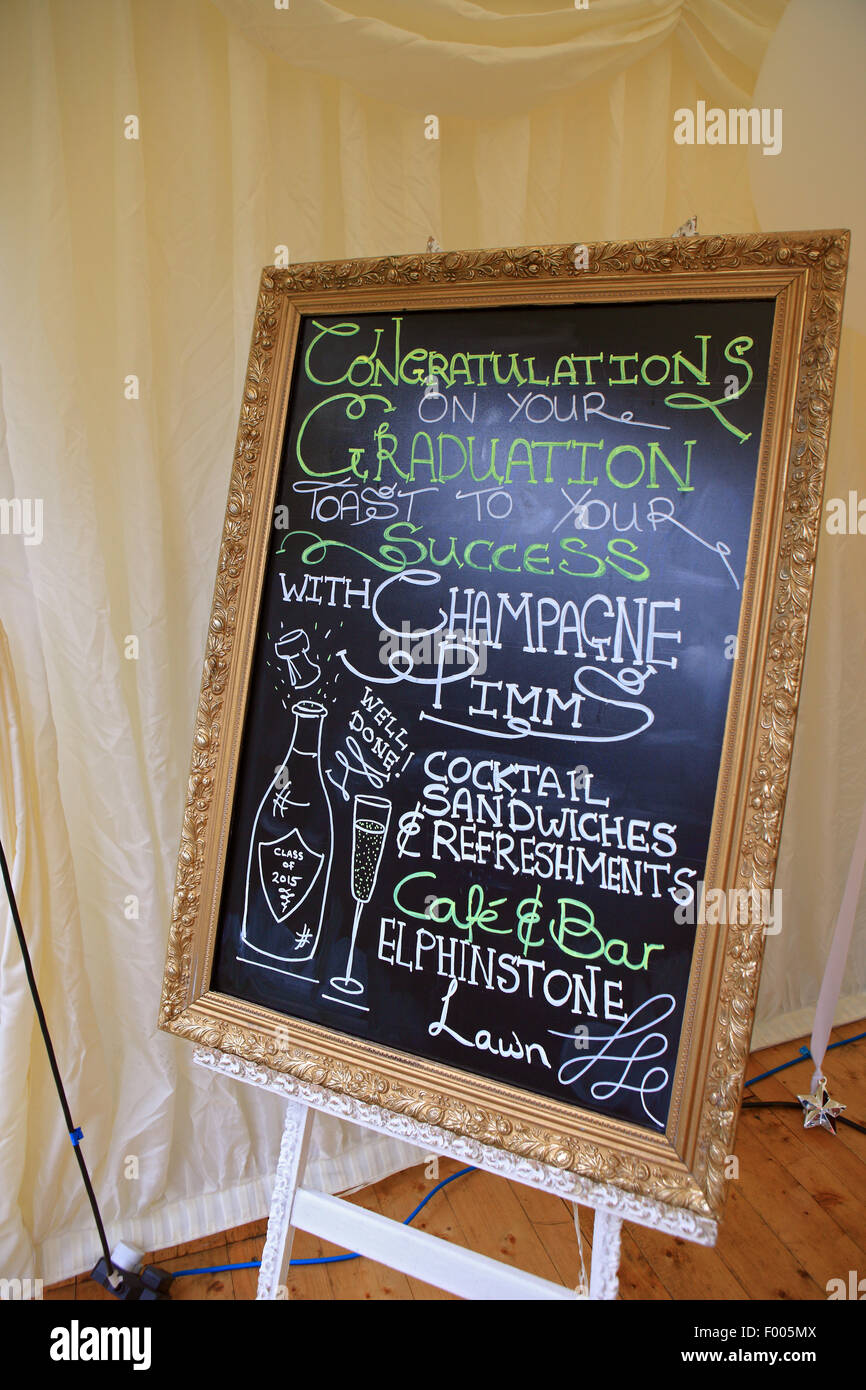 CONGRATULATIONS
ON YOUR
GRADUATION
TOAST TO YOUR
SUCCESS
WITH CHAMPAGNE
PIMMS
WELL
DONE!
COCKTAIL
SANDWICHES
& REFRESHMENTS
CLASS
OF
2015
Café & Bar
ELPHINSTONE
Lawn
alamy
Image ID: F005MX
www.alamy.com